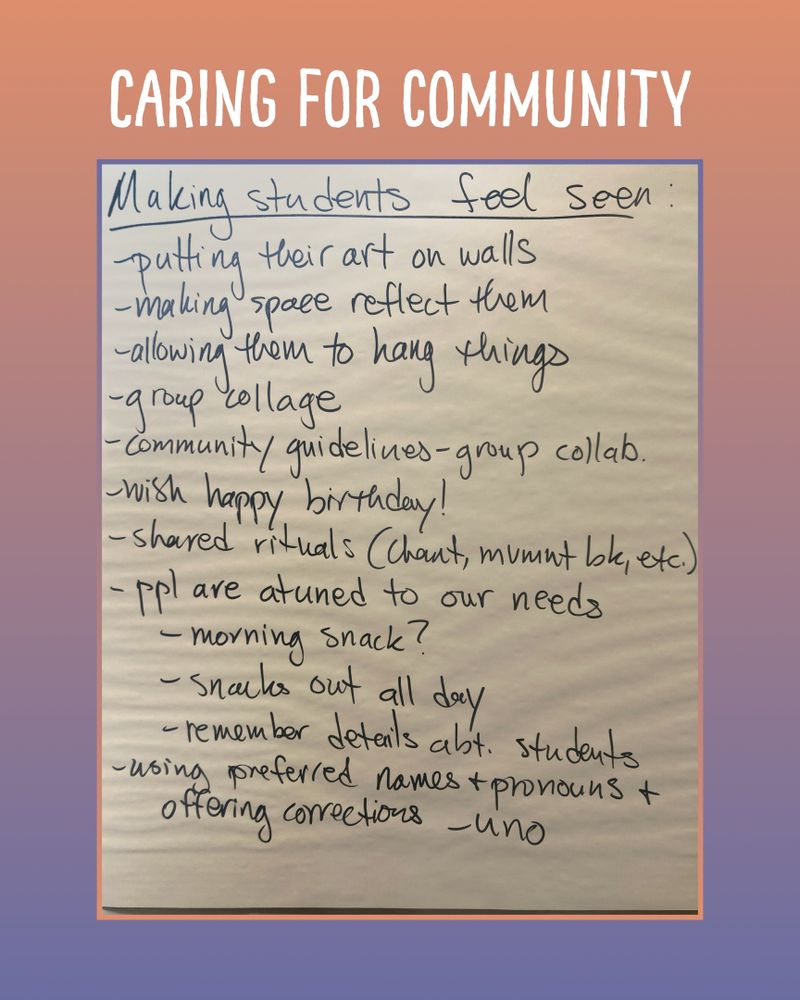 CARING FOR COMMUNITY
Making students feel seen:
-putting their art on walls
-making space reflect them
-allowing them to hang things
-group collage
-community guidelines-group collab.
-wish happy birthday!
-shared rituals (chant, mvmnt bk, etc.)
-ppl are atuned to our needs
-morning snack?
-snacks out all day
-remember details abt. students
-using preferred names + pronouns +
offering corrections -uno